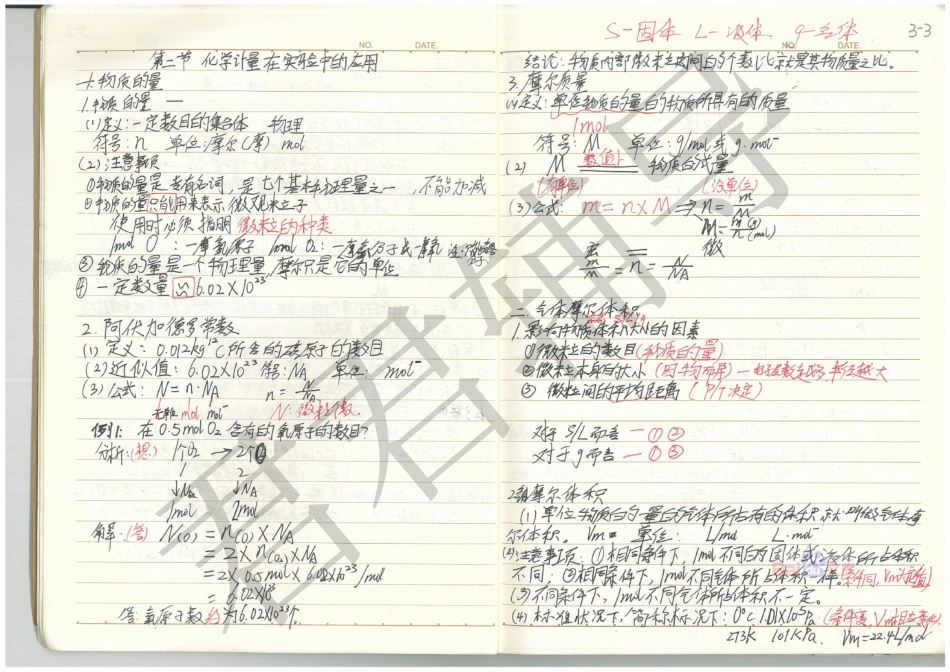 NO. DATE.
第二节 化学计量在实验中的应用
一.物质的量
1.物质的量 一
(1)定义:一定数目的集合体 物理
符号:n 单位:摩尔(摩) mol
(2)注意事项
①物质的量是专有名词,是七个基本物理量之一,不能加减
②物质的量只能用来表示微观粒子
使用时必须指明微粒的种类
1mol O:一摩氧原子 1mol O₂:一摩氧分子或一摩氧
③物质的量是一个物理量,摩尔只是它的单位
④一定数量≈6.02×10²³
2.阿伏加德罗常数
(1)定义:0.012kg ¹²C所含的碳原子的数目
(2)近似值:6.02×10²³ 符号:NA 单位:mol⁻
(3)公式:N=n·NA n=N/NA
mol mol⁻ N:微粒个数
例1:在0.5mol O₂含有的氧原子的数目?
分析:(想) 1个O₂ → 2个O
1 2
↓NA ↓NA
1mol 2mol
解:(答) N(O)=n(O)×NA
=2×n(O₂)×NA
=2×0.5mol×6.02×10²³/mol
=6.02×10²³
答:氧原子数约为6.02×10²³个.
S-固体 L-液体 g-气体 3-3
NO. DATE.
结论:物质内部微粒之间的个数比就是其物质量之比。
3.摩尔质量
(1)定义:单位物质的量的物质所具有的质量
1mol
符号:M 单位:g/mol或g·mol⁻
(2) M 数值上 物质的式量
(有单位) (没单位)
(3)公式: m=n×M ⇒ n=m/M
M=m(g)/n(mol)
宏 = 微
m/M=n=N/NA
二.气体摩尔体积
1.影响物质体积大小的因素
①微粒的数目(物质的量)
②微粒本身的大小(因物而异)
③微粒间的平均距离(P/T决定)
对于S/L而言 —①②
对于g而言 —①③
2.摩尔体积
(1)单位物质的量的气体所占有的体积
尔体积. Vm= 单位: L/mol L·mol⁻
(2)注意事项:①相同条件下,1mol不同的固体或液体所占体积
不同;②相同条件下,1mol不同气体所占体积一样。(条件同,Vm为定值)
(3)不同条件下,1mol不同气体所占体积不一定。
(4)标准状况下,简称标况下:0℃ 1.01×10⁵Pa (条件变,Vm相应变化)
273K 101KPa. Vm=22.4L/mol
君君辅导